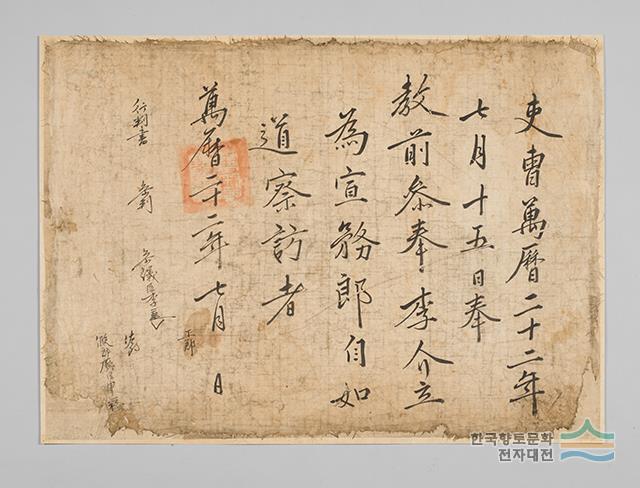 吏曹萬曆二十二年
七月十五日奉
教前參奉李介立
為宣務郎自如
道察訪者
萬曆二十二年七月 日
行判書
參判
參議臣李
正郎
佐郎
한국향토문화
전자대전